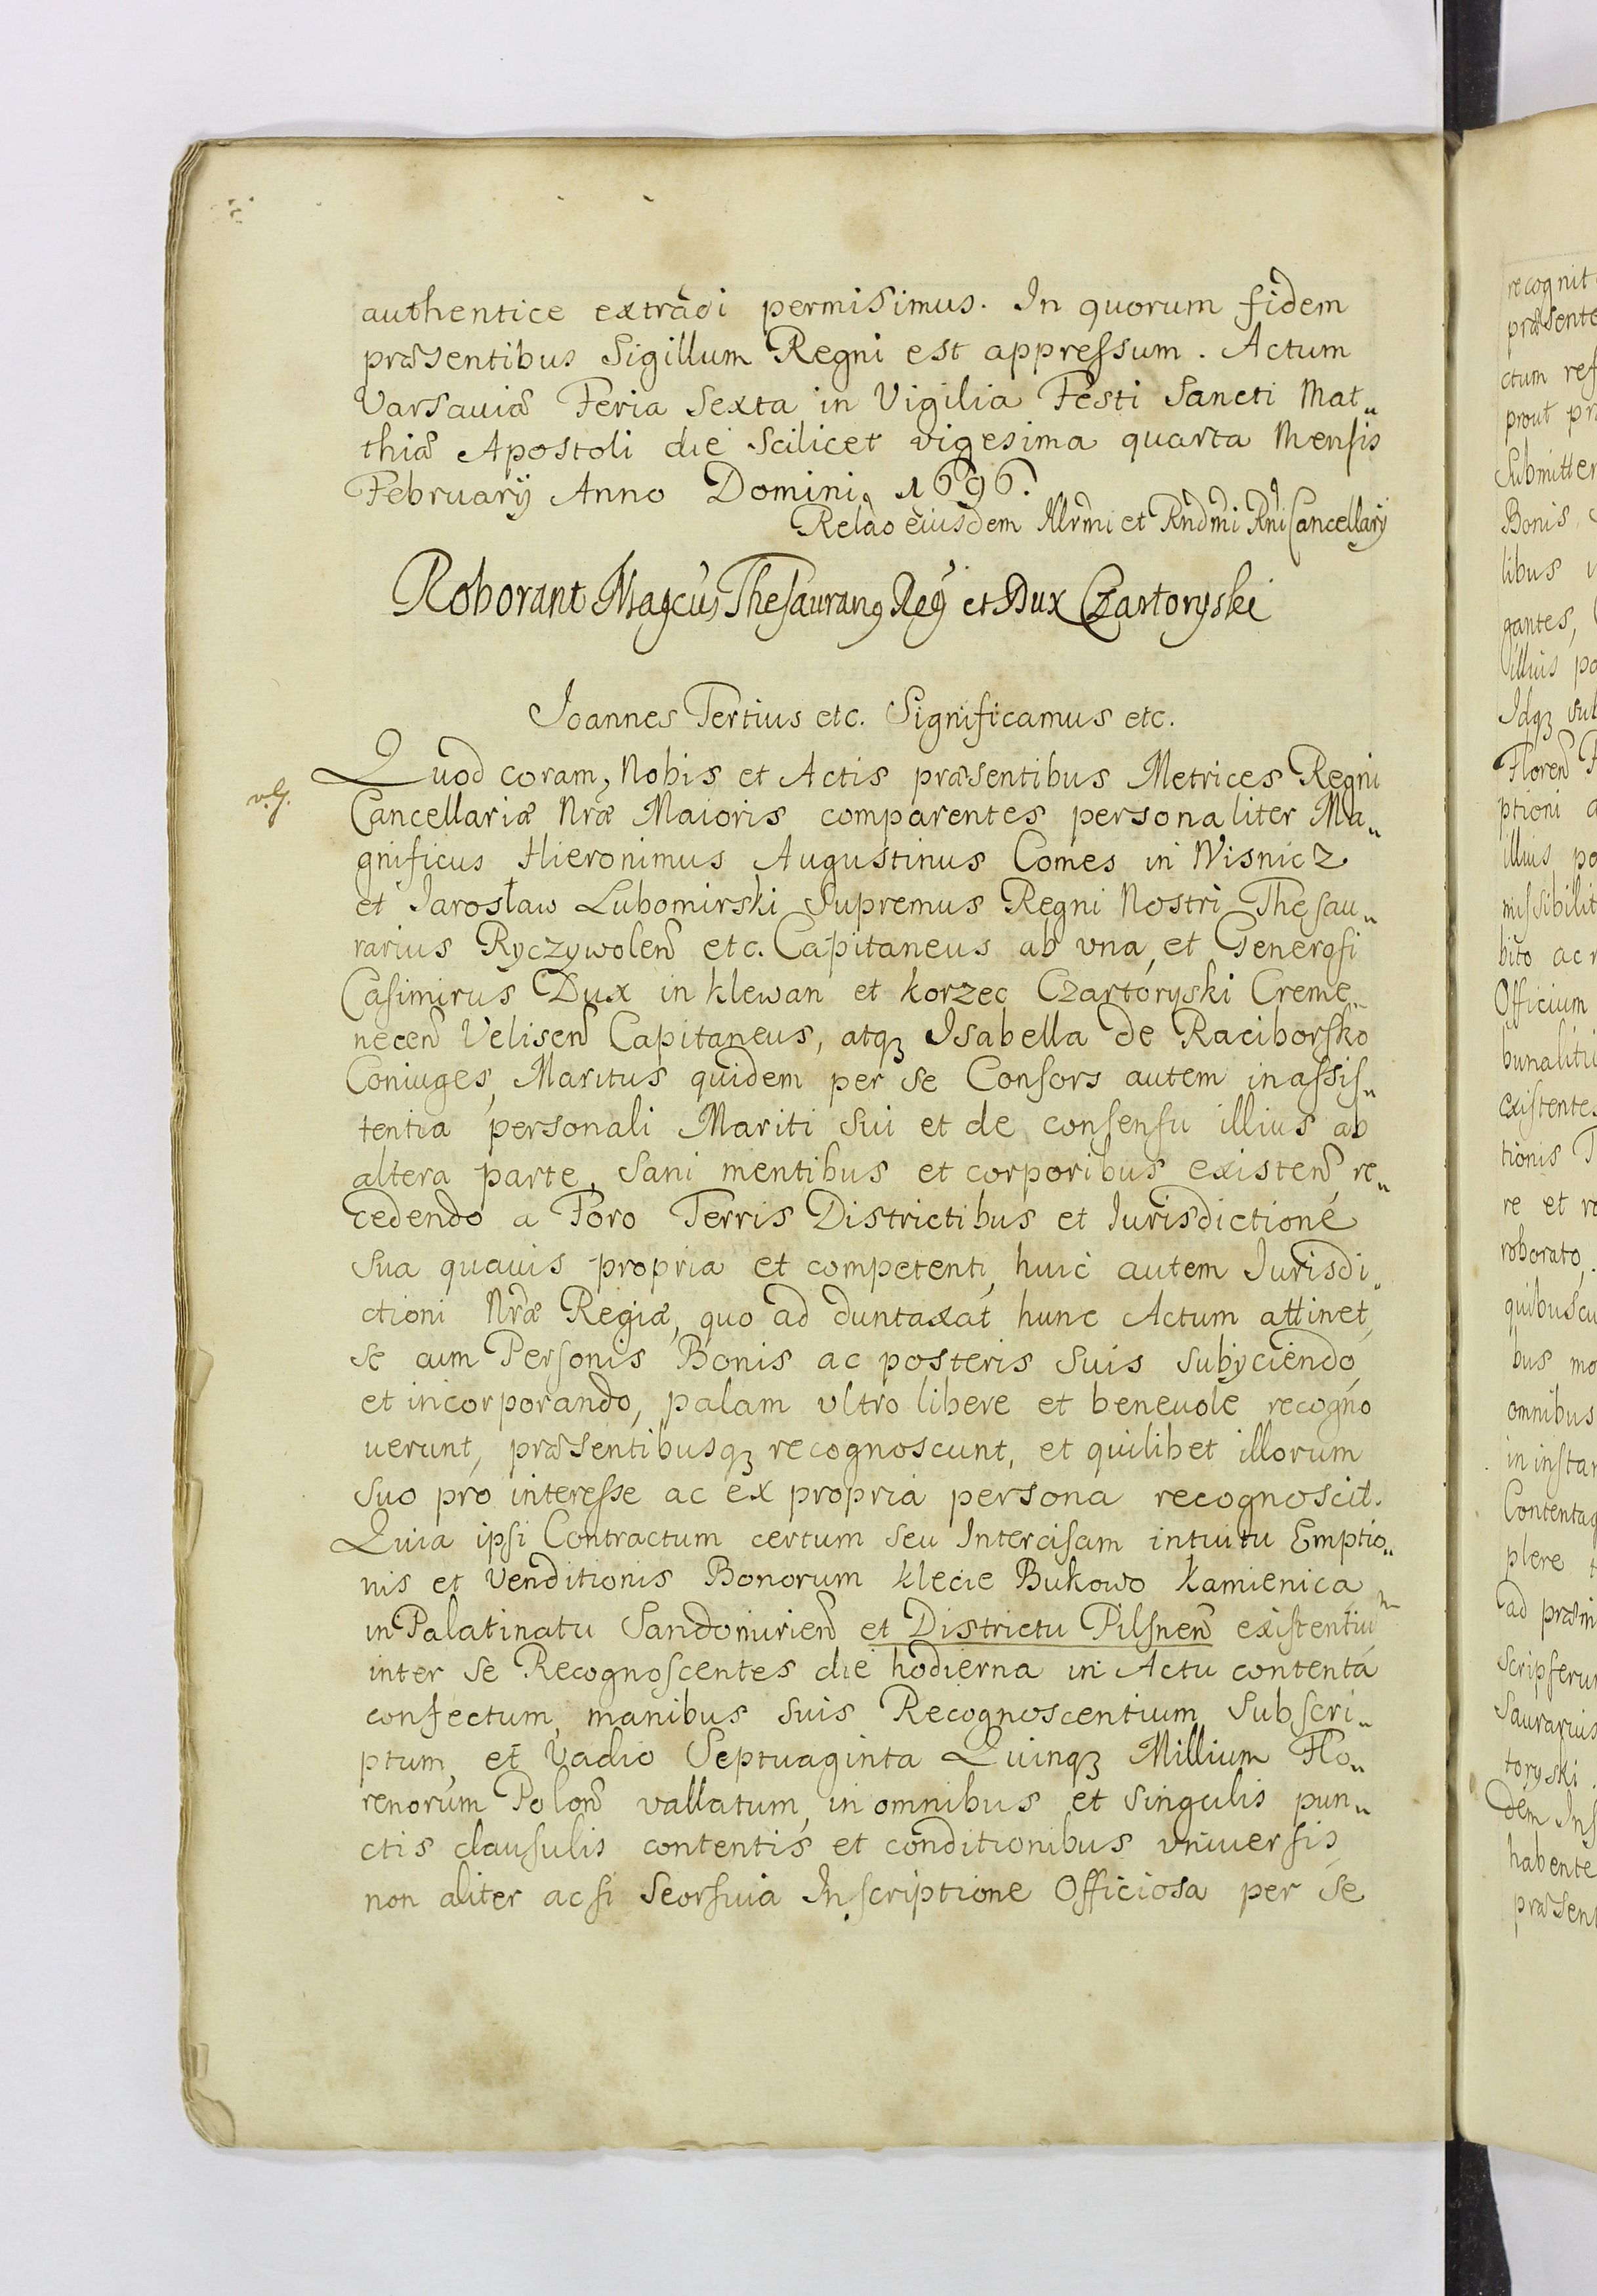 authentice extradi permisimus. In quorum fidem
præsentibus Sigillum Regni est appressum. Actum
Varsaviæ Feria Sexta in Vigilia Festi Sancti Mat„
thiæ Apostoli die scilicet vigesima quarta Mensis
Februarij Anno Domini 1696.
Relao eiusdem Illrmi et Rndmi Rni Cancellarij
Roborant Magcus Thesaurang Reg et Dux Czartoryski
Joannes Tertius etc. Significamus etc.
Quod coram, Nobis et Actis præsentibus Metrices Regni
Cancellariæ Nræ Maioris comparentes personaliter Ma„
gnificus Hieronimus Augustinus Comes in Wisnicz
et Jarosław Lubomirski Supremus Regni Nostri Thesau„
rarius Ryczywolen etc. Capitaneus ab vna, et Generosi
Casimirus Dux in klewan et korzec Czartoryski Creme„
necen Velisen Capitaneus, atqz Isabella de Raciborsko
Coniuges, Maritus quidem per se Consors autem in assis„
tentia personali Mariti sui et de consensu illius ab
altera parte, sani mentibus et corporibus existen re„
cedendo a Foro Terris Districtibus et Iurisdictione
sua quavis propria et competenti, huic autem Iurisdi„
ctioni Nræ Regiæ, quo ad duntaxat hunc Actum attinet,
se cum Personis Bonis ac posteris suis subijciendo,
et incorporando, palam vltro libere et beneuole recogno
uerunt, præsentibusqz recognoscunt, et quilibet illorum
suo pro interesse ac ex propria persona recognoscit.
Quia ipsi Contractum certum seu Intercisam intuitu Emptio„
nis et Venditionis Bonorum klecie Bukowo kamienica
in Palatinatu Sandomirien et Districtu Pilsnen existentium
inter se Recognoscentes die hodierna in Actu contenta
confectum, manibus suis Recognoscentium subscri„
ptum, et Vadio Septuaginta Quinqz Millium Flo„
renorum Polon vallatum, in omnibus et singulis pun„
ctis clausulis contentis et conditionibus vniuersis,
non aliter ac si seorsiua Inscriptione Officiosa per se